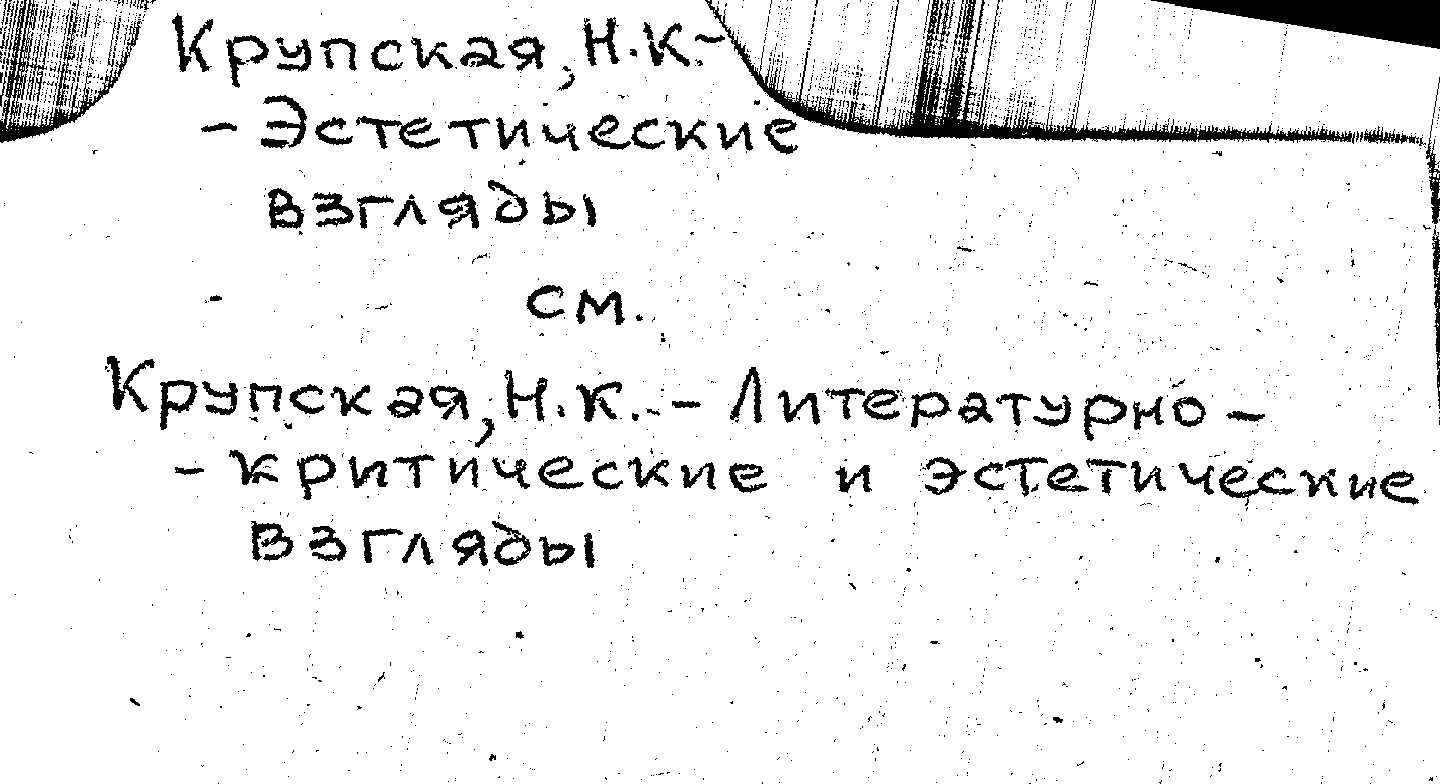 Крупская, Н.К.-
- Эстетические
взгляды
см.
Крупская, Н.К. - Литературно -
- критические и эстетические
взгляды